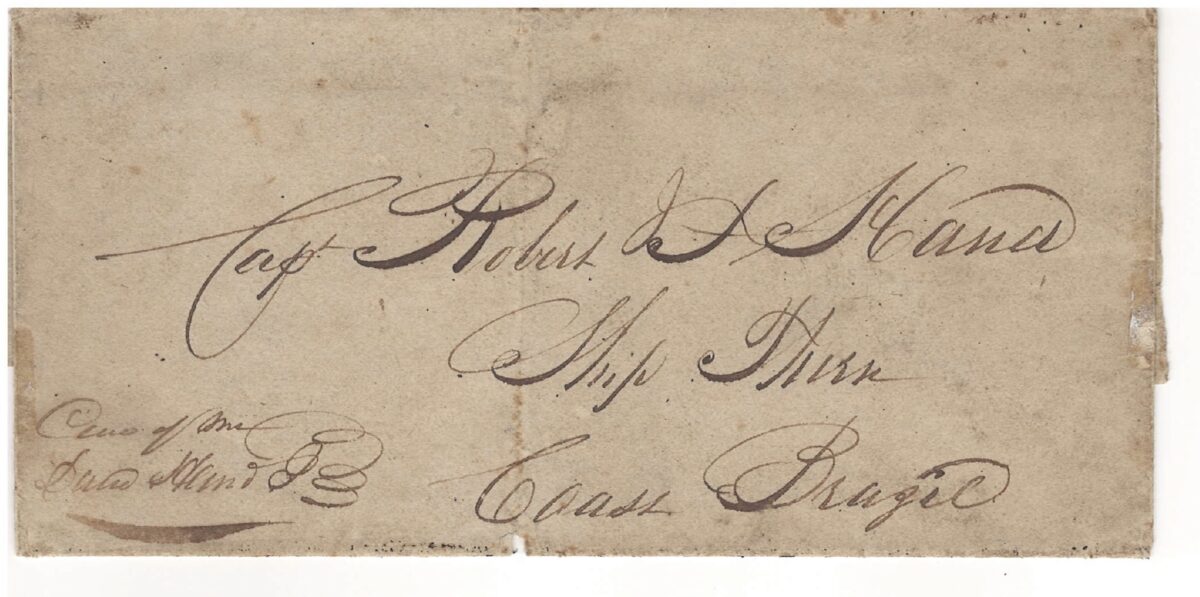 Capt Robert Hand
Ship Thorn
Coast Brazil
Care of Mr
David Hand